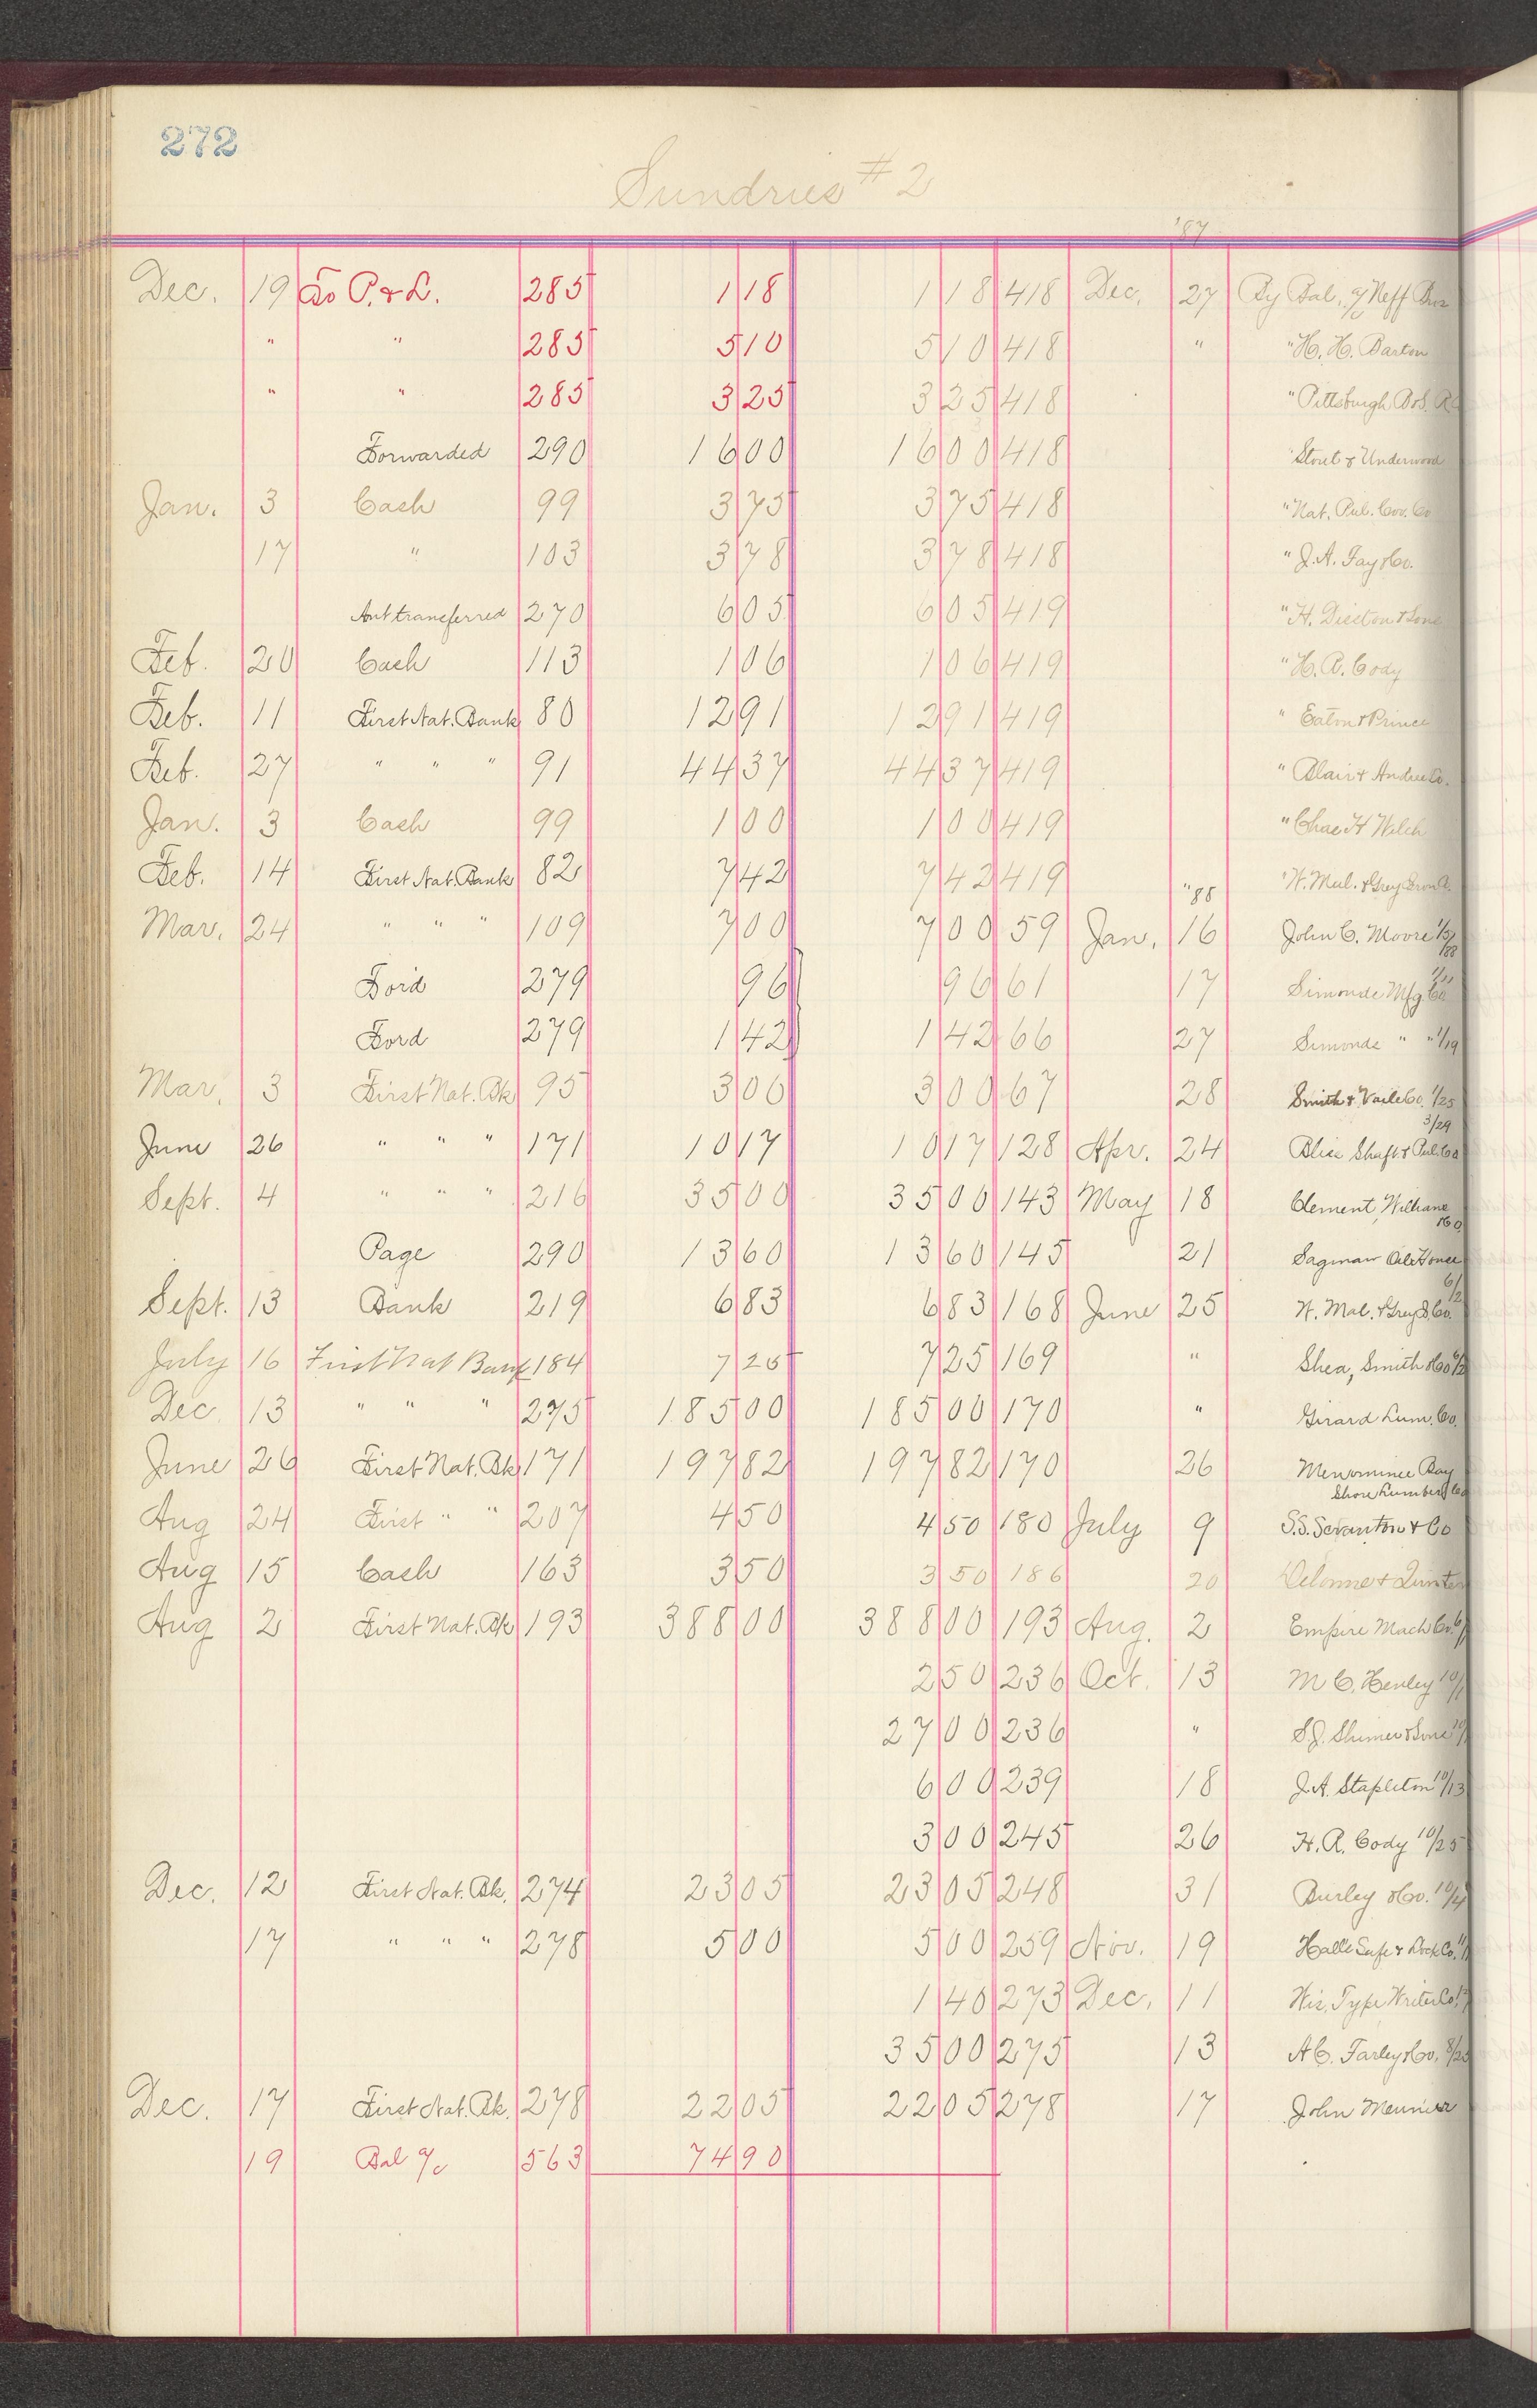 272
Sundries #2
'87
Dec. 19 To P. & L. 285 1 18 1 18 418 Dec. 27 By Bal. a/c Neff Bros
" " 285 5 10 5 10 418 " " H. H. Barton
" " 285 3 25 3 25 418 " Pittsburgh
Forwarded 290 16 00 16 00 418 Stout & Underwood
Jan. 3 Cash 99 3 75 3 75 418 " Nat. Pul. Cov. Co
17 " 103 3 78 3 78 418 " J. A. Fay & Co.
Amt transferred 270 6 05 6 05 419 " H. Disston & Sons
Feb. 20 Cash 113 1 06 1 06 419 " H. R. Cody
Feb. 11 First Nat. Bank 80 12 91 12 91 419 " Eaton & Prince
Feb. 27 " " " 91 44 37 44 37 419 " Blair & Andree Co.
Jan. 3 Cash 99 1 00 1 00 419 " Chas H Welch
Feb. 14 First Nat. Bank 82 7 42 7 42 419 " W. Mal. & Grey Iron
"88
Mar. 24 " " " 109 7 00 7 00 59 Jan. 16 John C. Moore 1/5/88
Ford 279 96 96 61 17 Simonds Mfg. Co 1/11
Ford 279 1 42 1 42 66 27 Simonds " " 1/19
Mar. 3 First Nat. Bk 95 3 00 3 00 67 28 Smith & Vaile Co. 1/25
June 26 " " " 171 10 17 10 17 128 Apr. 24 Shaft & Pul. Co 3/29
Sept. 4 " " " 216 35 00 35 00 143 May 18 Clement, Williams & Co.
Page 290 13 60 13 60 145 21 Saginaw Oil House
Sept. 13 Bank 219 6 83 6 83 168 June 25 W. Mal. & Grey I. Co. 6/2
July 16 First Nat Bank 184 7 25 7 25 169 " Shea, Smith & Co
Dec 13 " " " 275 185 00 185 00 170 " Girard Lum. Co.
June 26 First Nat. Bk 171 197 82 197 82 170 26 Menominee Bay
Shore Lumber Co
Aug 24 First " " 207 4 50 4 50 180 July 9 S. S. Scranton & Co
Aug 15 Cash 163 3 50 3 50 186 20
Aug 2 First Nat. Bk 193 388 00 388 00 193 Aug. 2 Empire Mach Co.
2 50 236 Oct. 13 M C. Henley
27 00 236 " S. J. Shimer & Sons
6 00 239 18 J. A. Stapleton 10/13
3 00 245 26 H. R. Cody 10/25
Dec. 12 First Nat. Bk. 274 23 05 23 05 248 31 Burley & Co.
17 " " " 278 5 00 5 00 259 Nov. 19 Hall's Safe & Lock Co.
1 40 273 Dec. 11 Wis. Type Writer Co.
35 00 275 13 A C. Farley & Co.
Dec. 17 First Nat. Bk. 278 22 05 22 05 278 17 John Meunier
19 Bal a/c 563 74 90